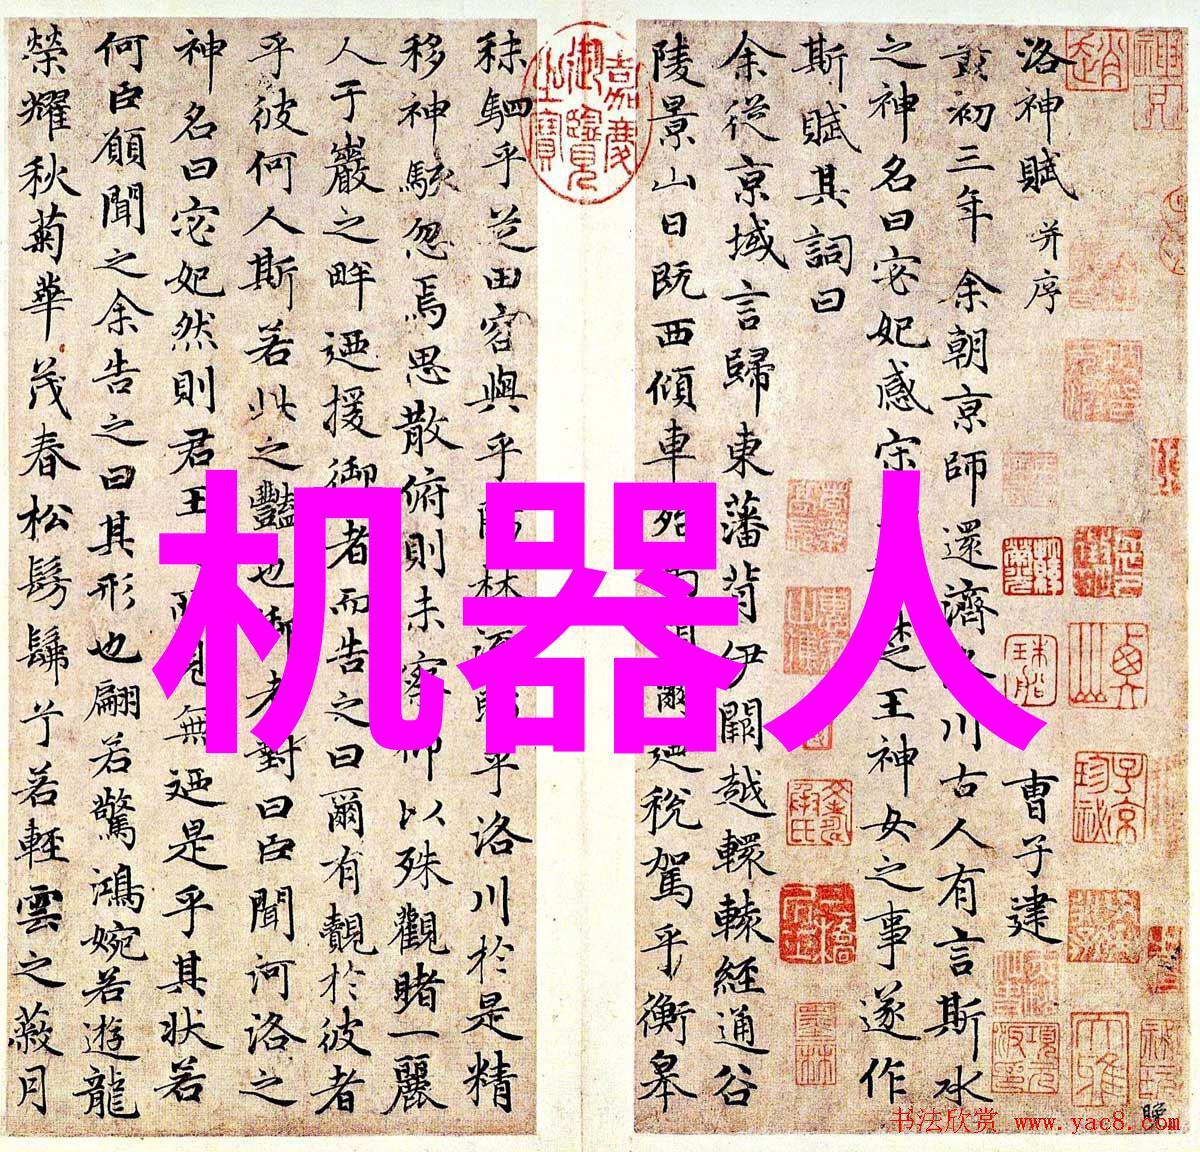 洛神賦 并序 曹子建
黃初三年余朝京師還濟洛川古人有言斯水
之神名曰宓妃感宋楚王神女之事遂作
斯賦其詞曰
余從京域言歸東藩背伊闕越轘轅經通谷
陵景山日既西傾車殆馬煩爾迺稅駕乎衡皋
嘉慶御覽之寶
秣駟乎芝田容與乎陽林流眄乎洛川於是精
移神駭忽焉思散俯則未察仰以殊觀睹一麗
人于巖之畔迺援御者而告之曰爾有覿於彼者
乎彼何人斯若此之豔也御者對曰臣聞河洛之
神名曰宓妃然則君王所見無迺是乎其狀若
何臣願聞之余告之曰其形也翩若驚鴻婉若遊龍
榮耀秋菊華茂春松髣髴兮若輕雲之蔽月
机器人
书法欣赏 www.yac8.com